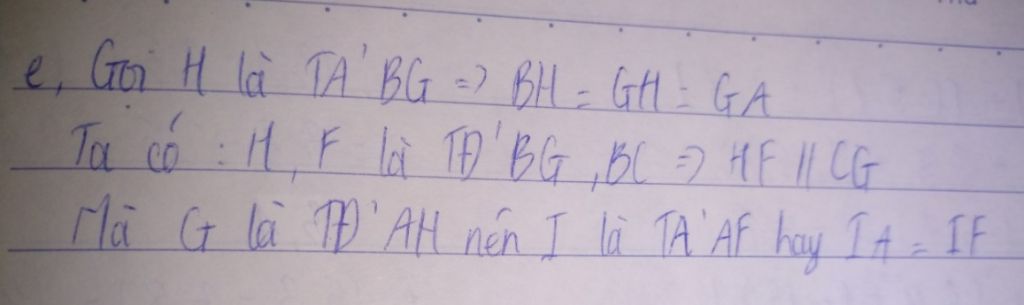 e, Gọi H là TĐ' BG => BH = GH = GA
Ta có : H, F là TĐ' BG, BC => HF // CG
Mà G là TĐ' AH nên I là TĐ' AF hay IA = IF